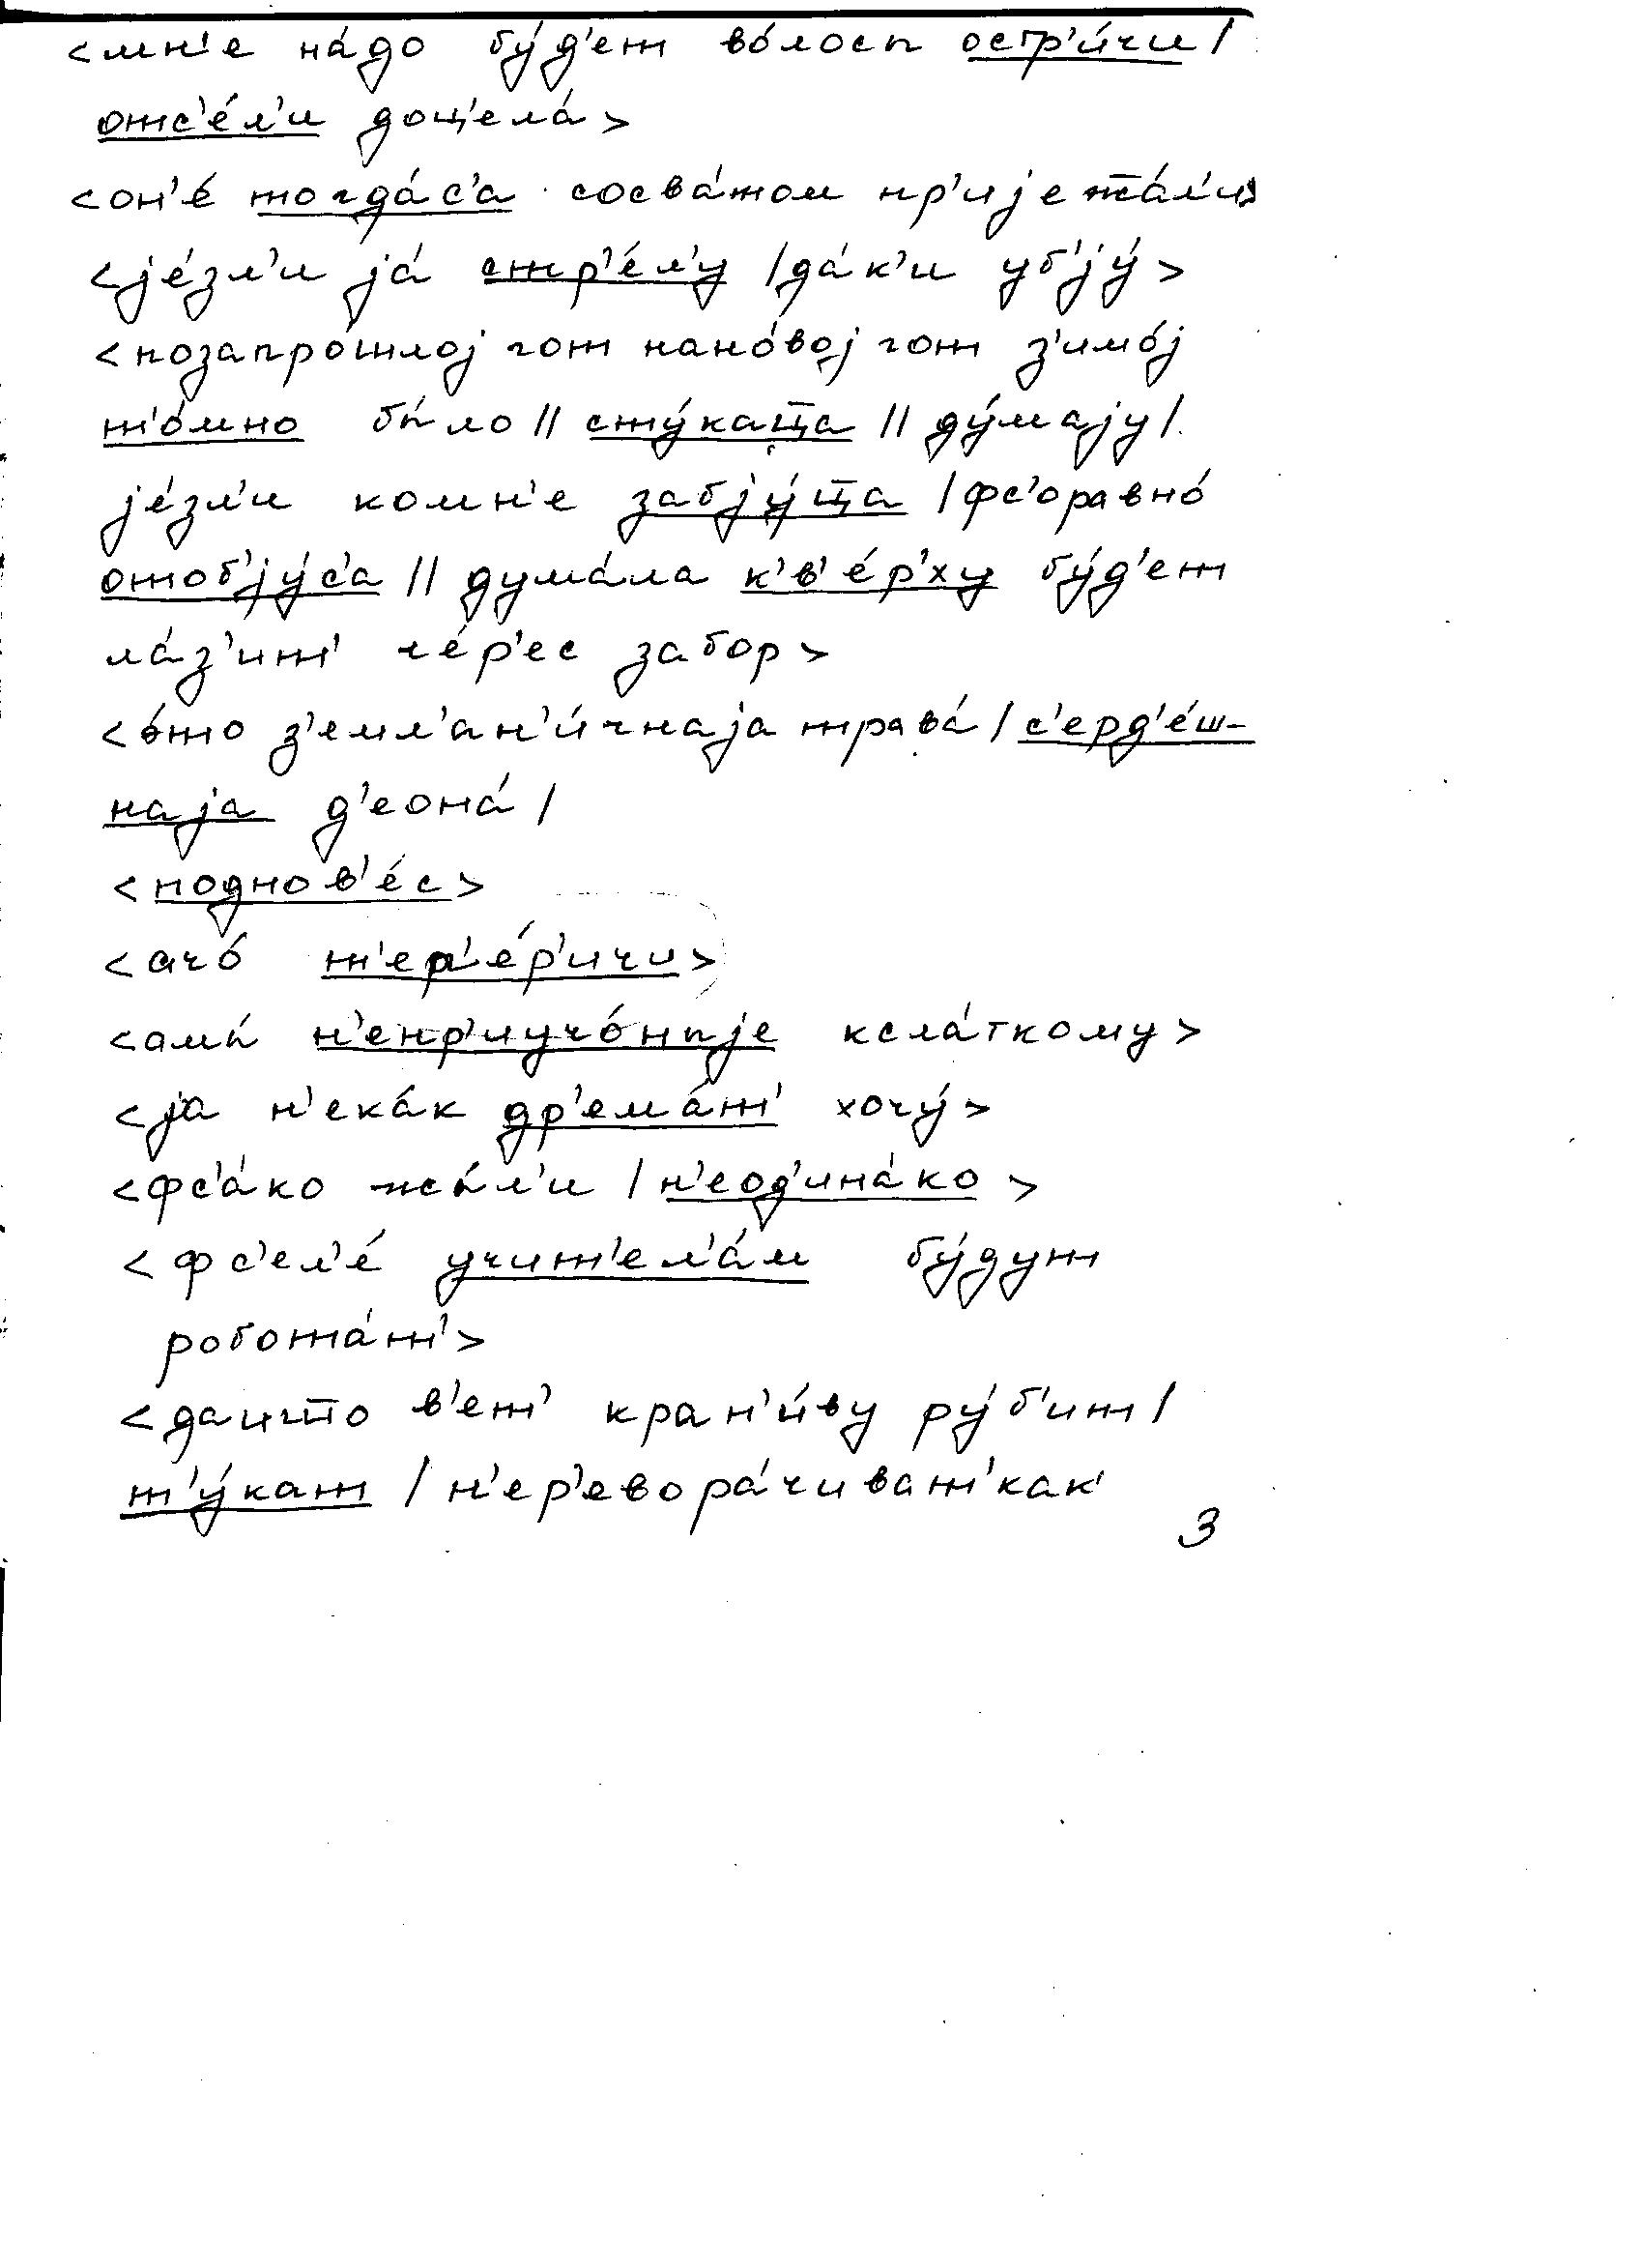 <мн'е на́до бу́д'ет во́лосы остр'и́чи /
отс'е́л'и доц'ела́>
<он'е́ тогда́с'а сосва́том пр'ијежа́л'и>
<је́зл'и ја́ стр'е́л'у / да́к'и уб'ју́>
<позапро́шлој гот нано́вој гот з'имо́ј
т'о́мно бы́ло // сту́каца // ду́мају /
је́зл'и комн'е забју́ца / фс'оравно́
отоб'ју́с'а // дума́ла к'в'е́р'ху бу́д'ет
ла́з'ит' че́р'ес забор>
<э́то з'емл'ан'и́чнаја трава́ / с'ерд'е́ш-
наја д'еона́ /
<поднов'е́с>
<ачо́ т'ер'е́р'ичи>
<амы́ н'епр'иучо́ныје ксла́ткому>
<ја н'ека́к др'ема́т' хочу́>
<фс'а́ко жы́л'и / н'еод'ина́ко>
<фс'ел'е́ учит'ел'а́м бу́дут
робота́т'>
<дашто в'ет' крап'и́ву ру́б'ит /
т'у́кат / п'ер'евора́чиват'как'
3